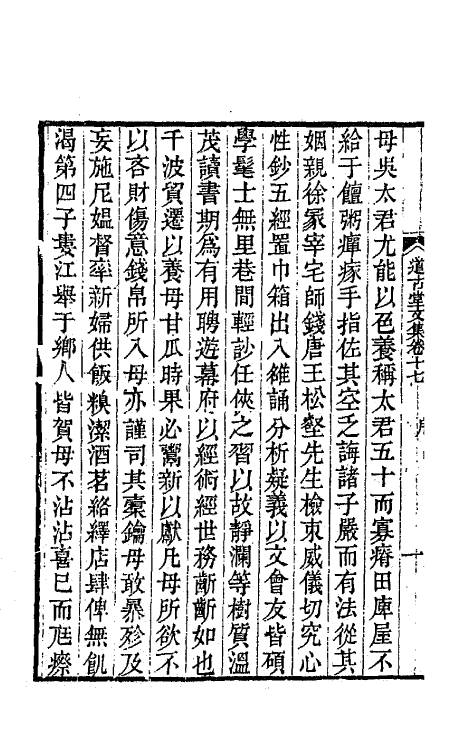 道古堂文集卷十七 序
母吳太君尤能以色養稱太君五十而寡瘠田庳屋不
給于饘粥癉瘃手指佐其空乏誨諸子嚴而有法從其
姻親徐冢宰宅師錢唐王松壑先生檢束威儀切究心
性鈔五經置巾箱出入維誦分析疑義以文會友皆碩
學髦士無里巷間輕訬任俠之習以故靜瀾等樹質溫
茂讀書期爲有用聘遊幕府以經術經世務齗齗如也
千波貿遷以養母甘瓜時果必鬻新以獻凡母所欲不
以吝財傷意錢帛所入母亦謹司其橐鑰毋敢暴殄及
妄施尼媼督率新婦供飯糗潔酒茗絡繹店肆俾無飢
渴第四子婁江舉于鄉人皆賀母不沾沾喜已而尪瘵